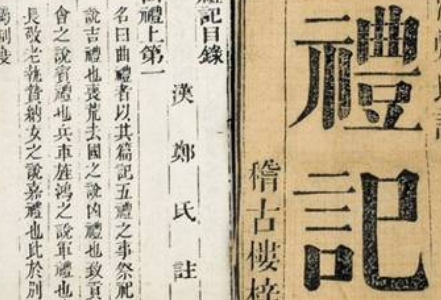 禮記
稽古樓梓
禮記目錄
漢鄭氏註
曲禮上第一
名曰曲禮者以其篇記五禮之事祭祀
說吉禮也喪荒去國之說凶禮也致貢
會之說賓禮也兵車旌鴻之說軍禮也
長敬老執贄納女之說嘉禮也此於別